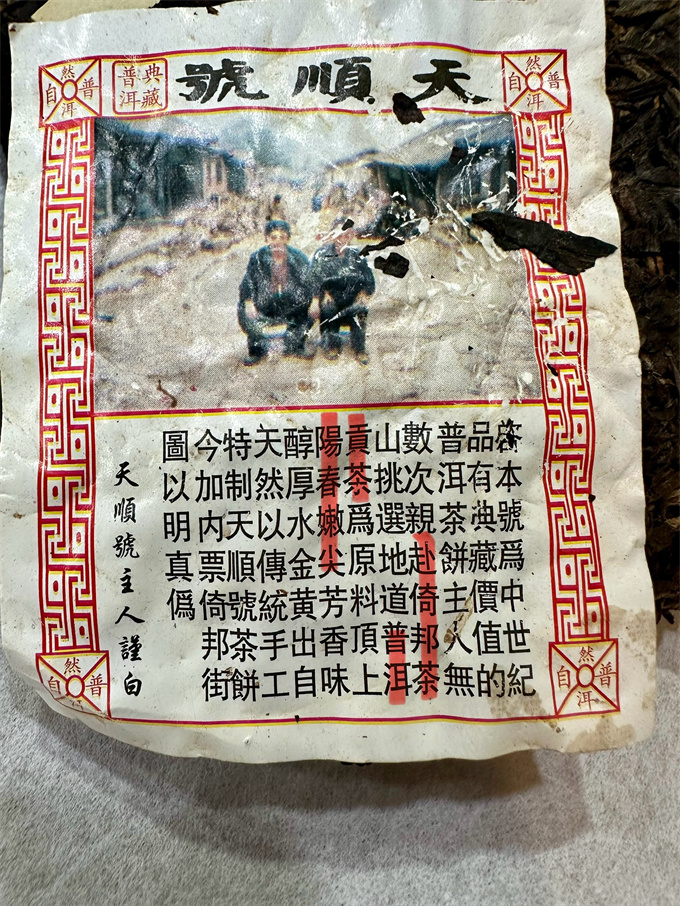 天順號
典藏普洱
自然普洱
自然普洱
本號爲中世紀
品有典藏價值的
普洱茶餅主人無
數次親赴倚邦茶
山挑選地道普洱
貢茶爲原料頂上
陽春嫩尖芳香味
醇厚水金黃出自
天然以傳統手工
特制天順號茶餅
今加内票倚邦街
圖以明真僞
天順號主人謹白
自然普洱
自然普